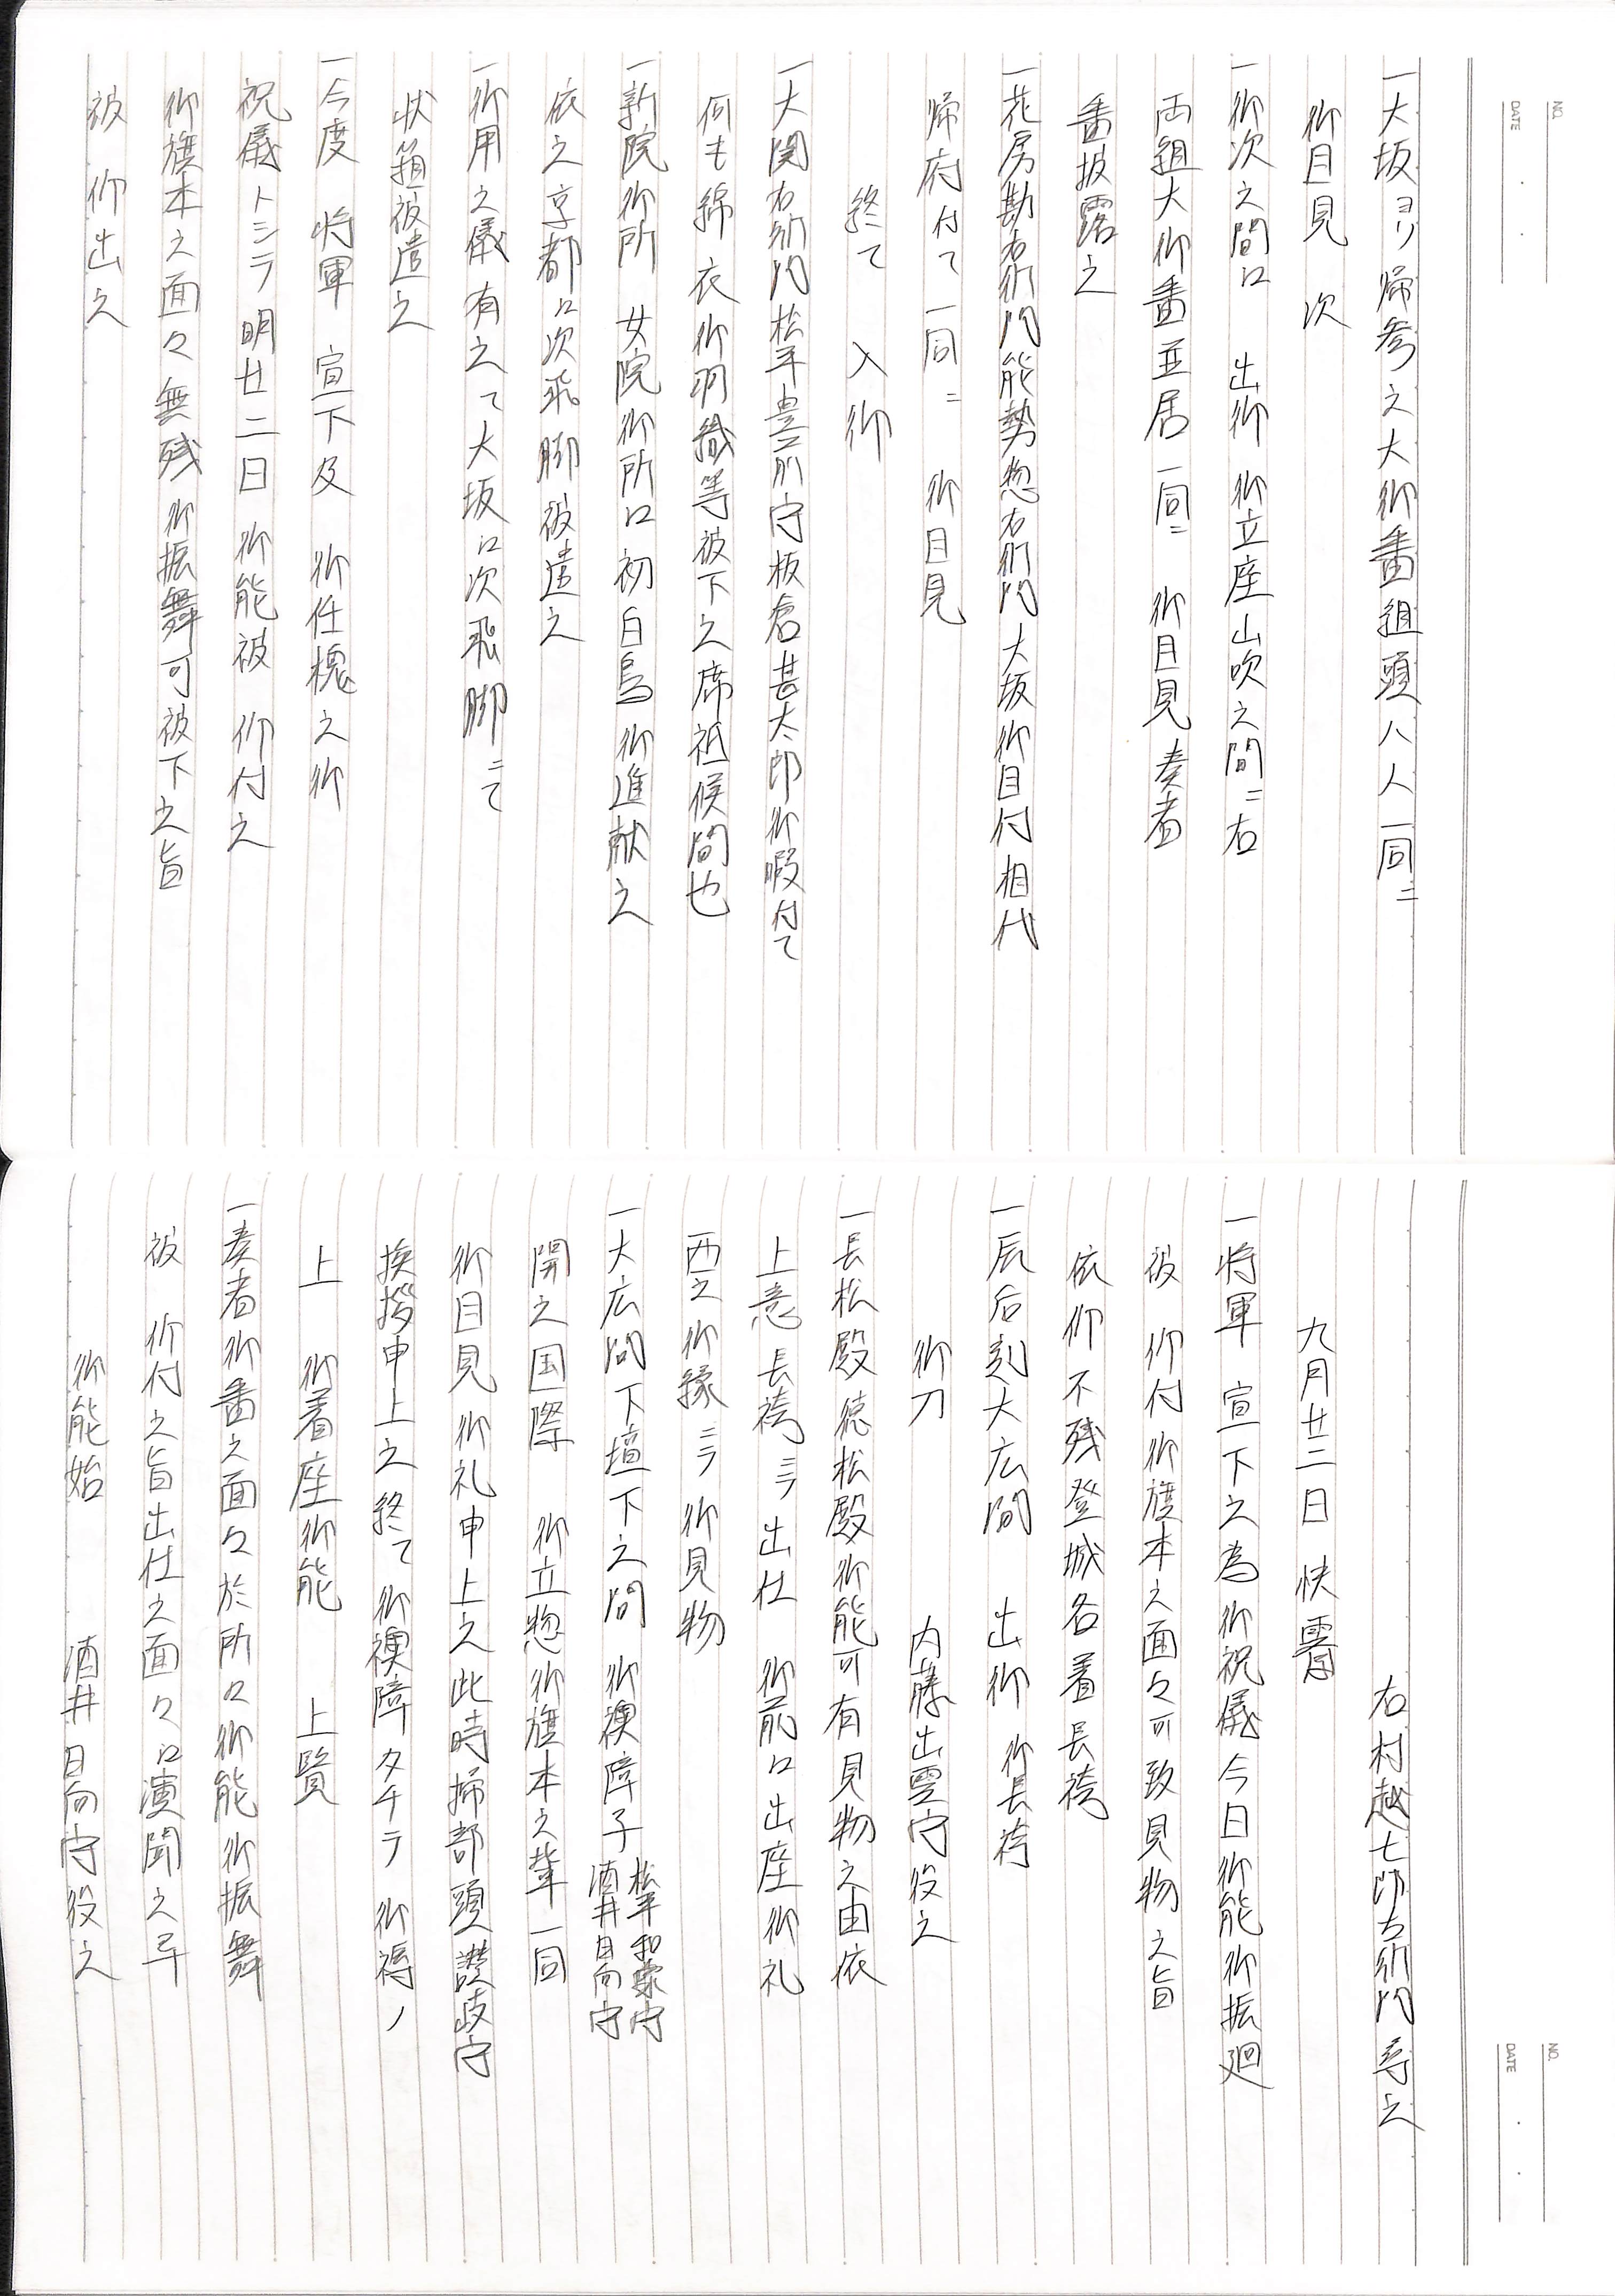 NO.
DATE
一大坂ヨリ帰参之大御番組頭八人一同ニ
御目見 次
一御次之間江 出御 御立座山吹之間ニ右
両組大御番並居一同ニ 御目見奏者
番披露之
一花房勘右衛門能勢惣右衛門大坂御目付相代
帰府付て一同ニ 御目見
終て 入御
一大関右衛門松平豊前守板倉甚太郎御暇付て
何も綿衣御羽織等被下之席祗候間也
一新院御所 女院御所江初白鳥御進献之
依之京都江次飛脚被遣之
一御用之儀有之て大坂江次飛脚ニて
状箱被遣之
一今度 将軍 宣下及 御任槐之御
祝儀トシテ明廿二日御能被 仰付之
御旗本之面々無残御振舞可被下之旨
被 仰出之
NO.
DATE
右村越七郎左衛門尋之
九月廿二日 快霽
一将軍 宣下之為御祝儀今日御能御振廻
被 仰付御旗本之面々可致見物之旨
依仰不残登城各着長袴
一辰后刻大広間 出御 御長袴
御刀 内藤出雲守役之
一長松殿徳松殿御能可有見物之由依
上意長袴ニテ出仕 御前江出座御礼
西之御縁ニテ御見物
一大広間下壇下之間 御襖障子 松平和泉守 酒井日向守
開之国際 御立惣御旗本之輩一同
御目見御礼申上之此時掃部頭讃岐守
挨拶申上之終て御襖障タチテ 御褥ノ
上 御着座御能 上覧
一奏者御番之面々於所々御能御振舞
被 仰付之旨出仕之面々江演聞之
御能始 酒井日向守役之